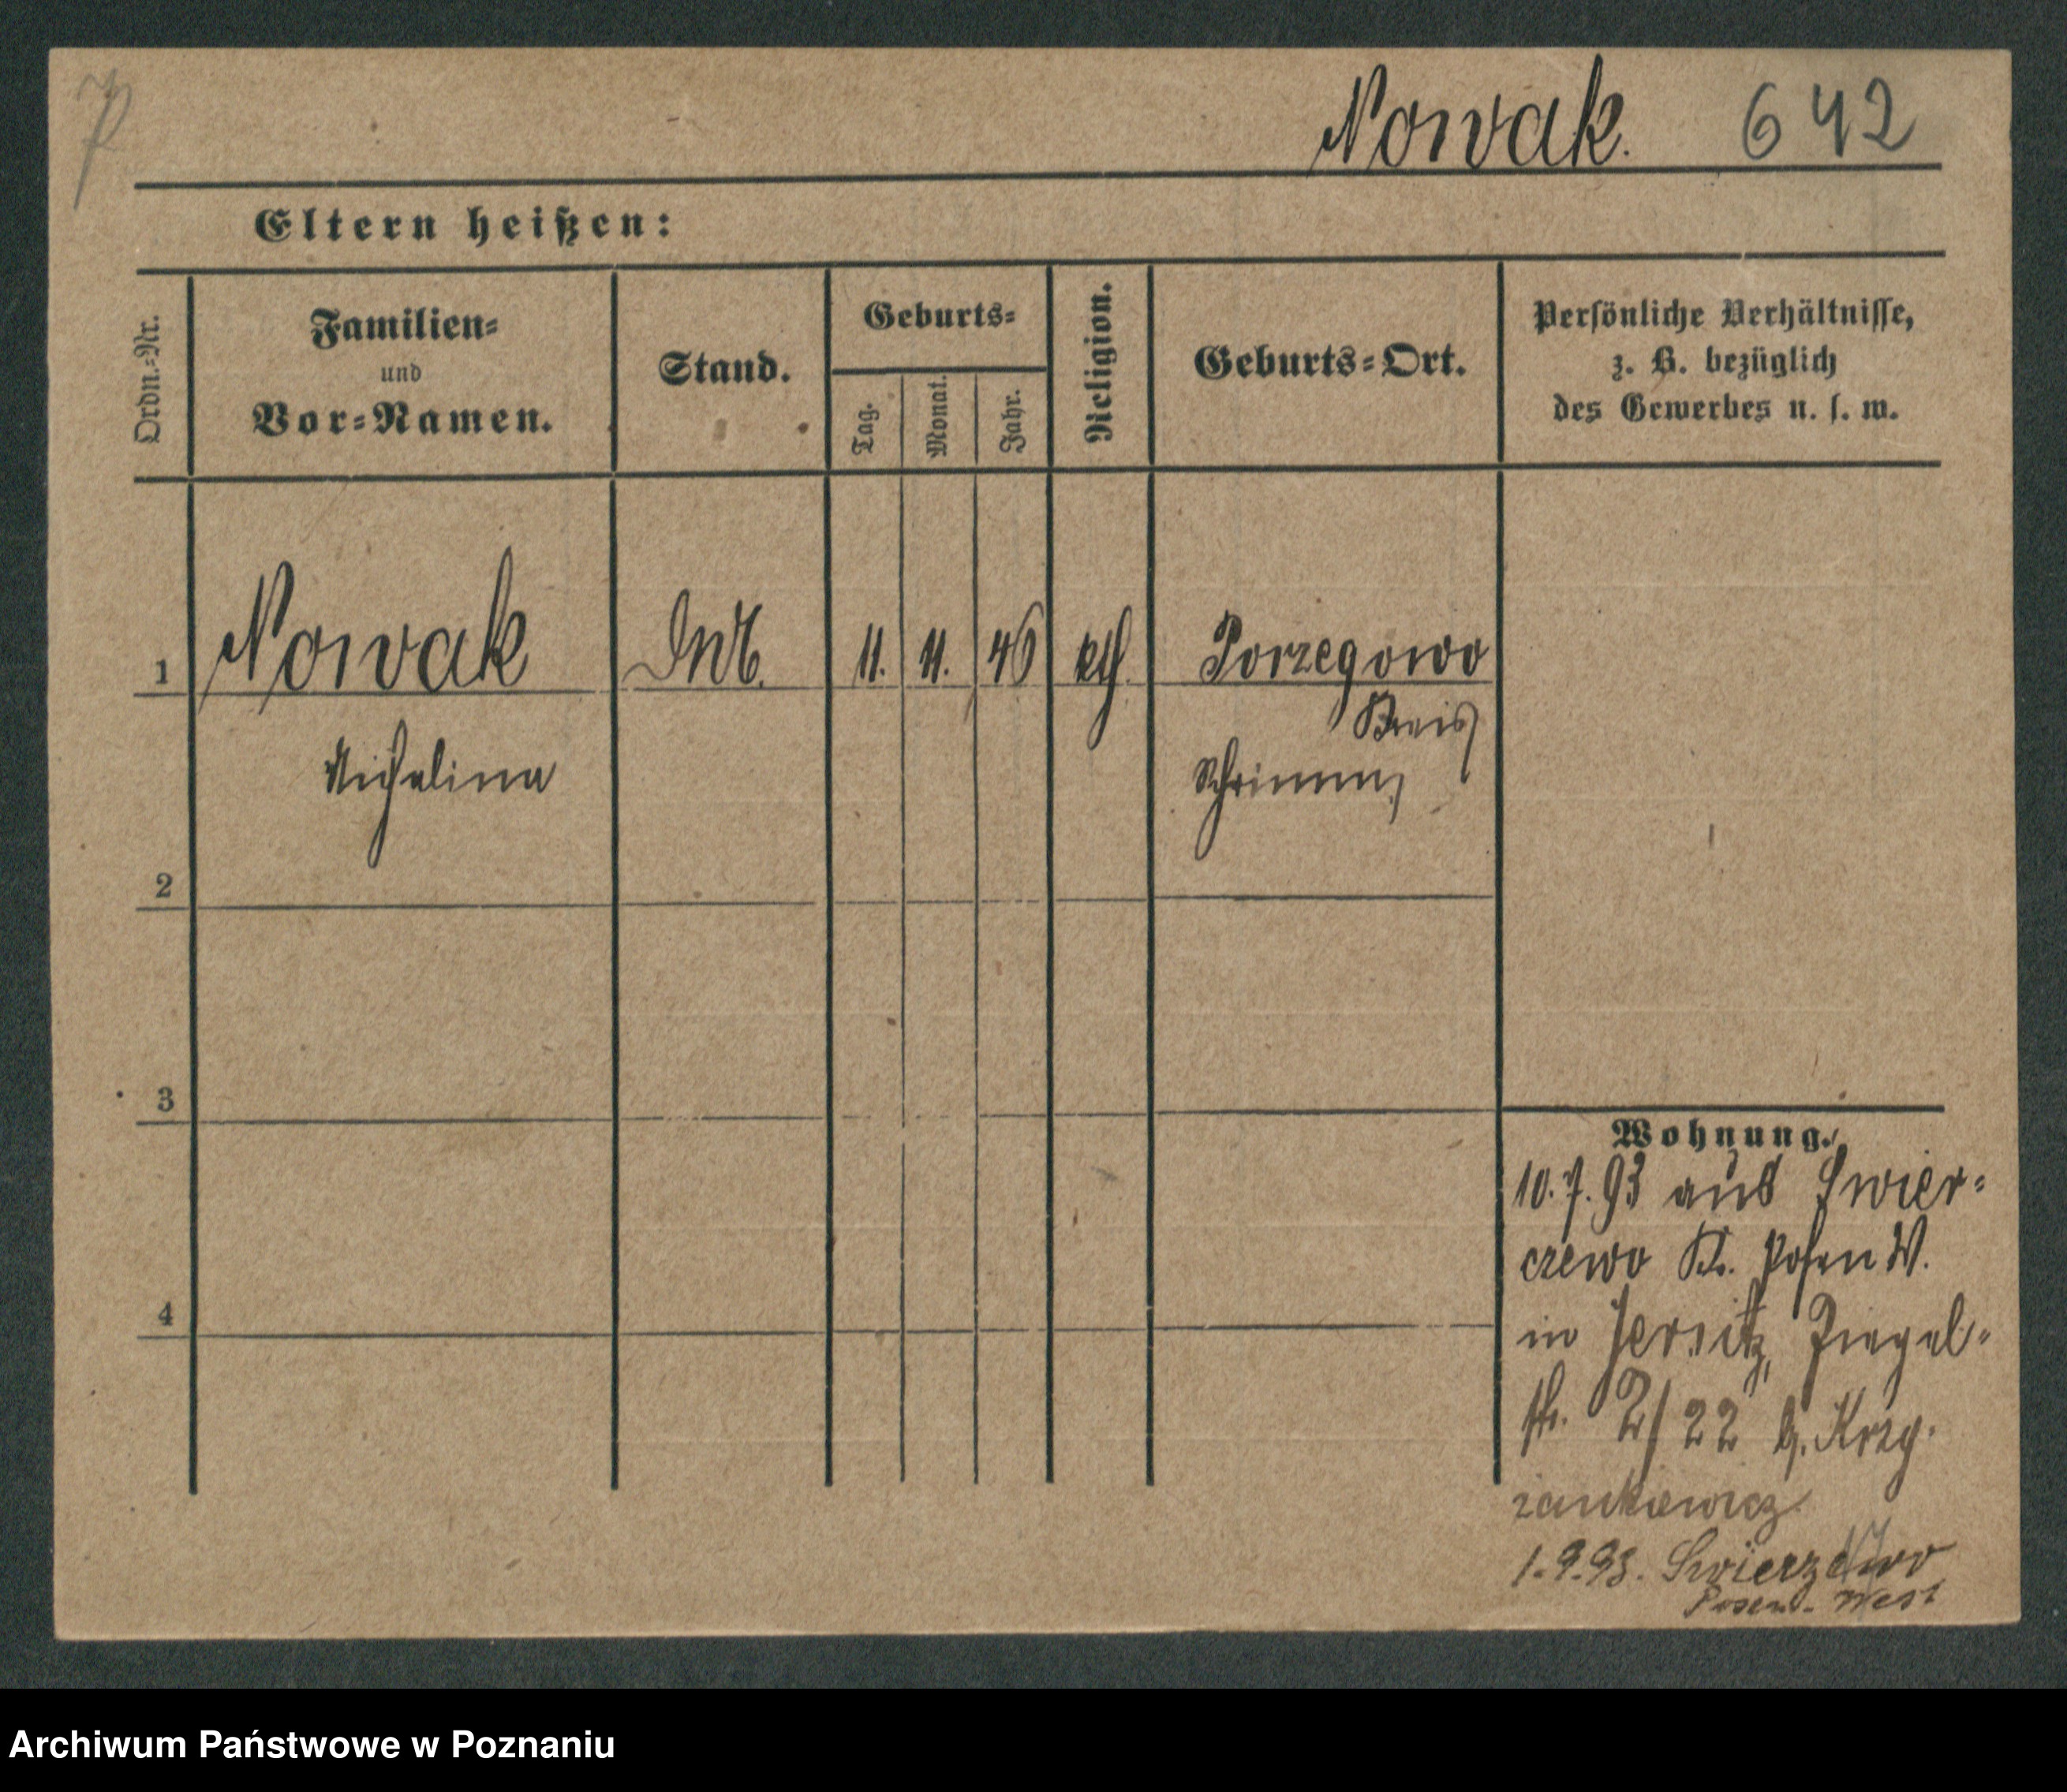 Nowak. 642
Eltern heißen:
Ordn.-Nr.
Familien-
und
Vor-Namen.
Stand.
Geburts-
Tag.
Monat.
Jahr.
Religion.
Geburts-Ort.
Persönliche Verhältnisse,
z. B. bezüglich
des Gewerbes u. s. w.
1 Nowak 11. 11. 46 kth. Porzegowo
Kreis
Michalina Schrimm
2
3
4
Wohnung.
10.7.93 aus Swier-
czewo Kr. Posen W.
in Jersitz, Ziegel-
str. 2/22 b. Krzy-
zankiewicz
1.9.93. Swierzewo
Posen-West
Archiwum Państwowe w Poznaniu